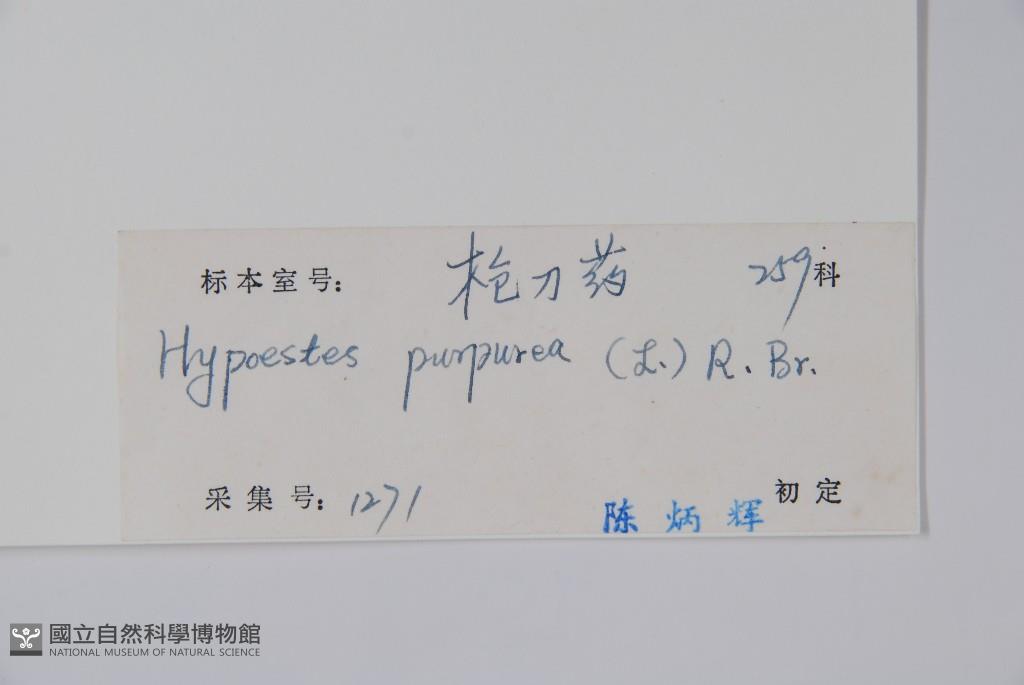 标本室号： 枪刀药 259科
Hypoestes purpurea (L.) R. Br.
采集号： 1271 陈炳辉 初定
國立自然科學博物館
NATIONAL MUSEUM OF NATURAL SCIENCE